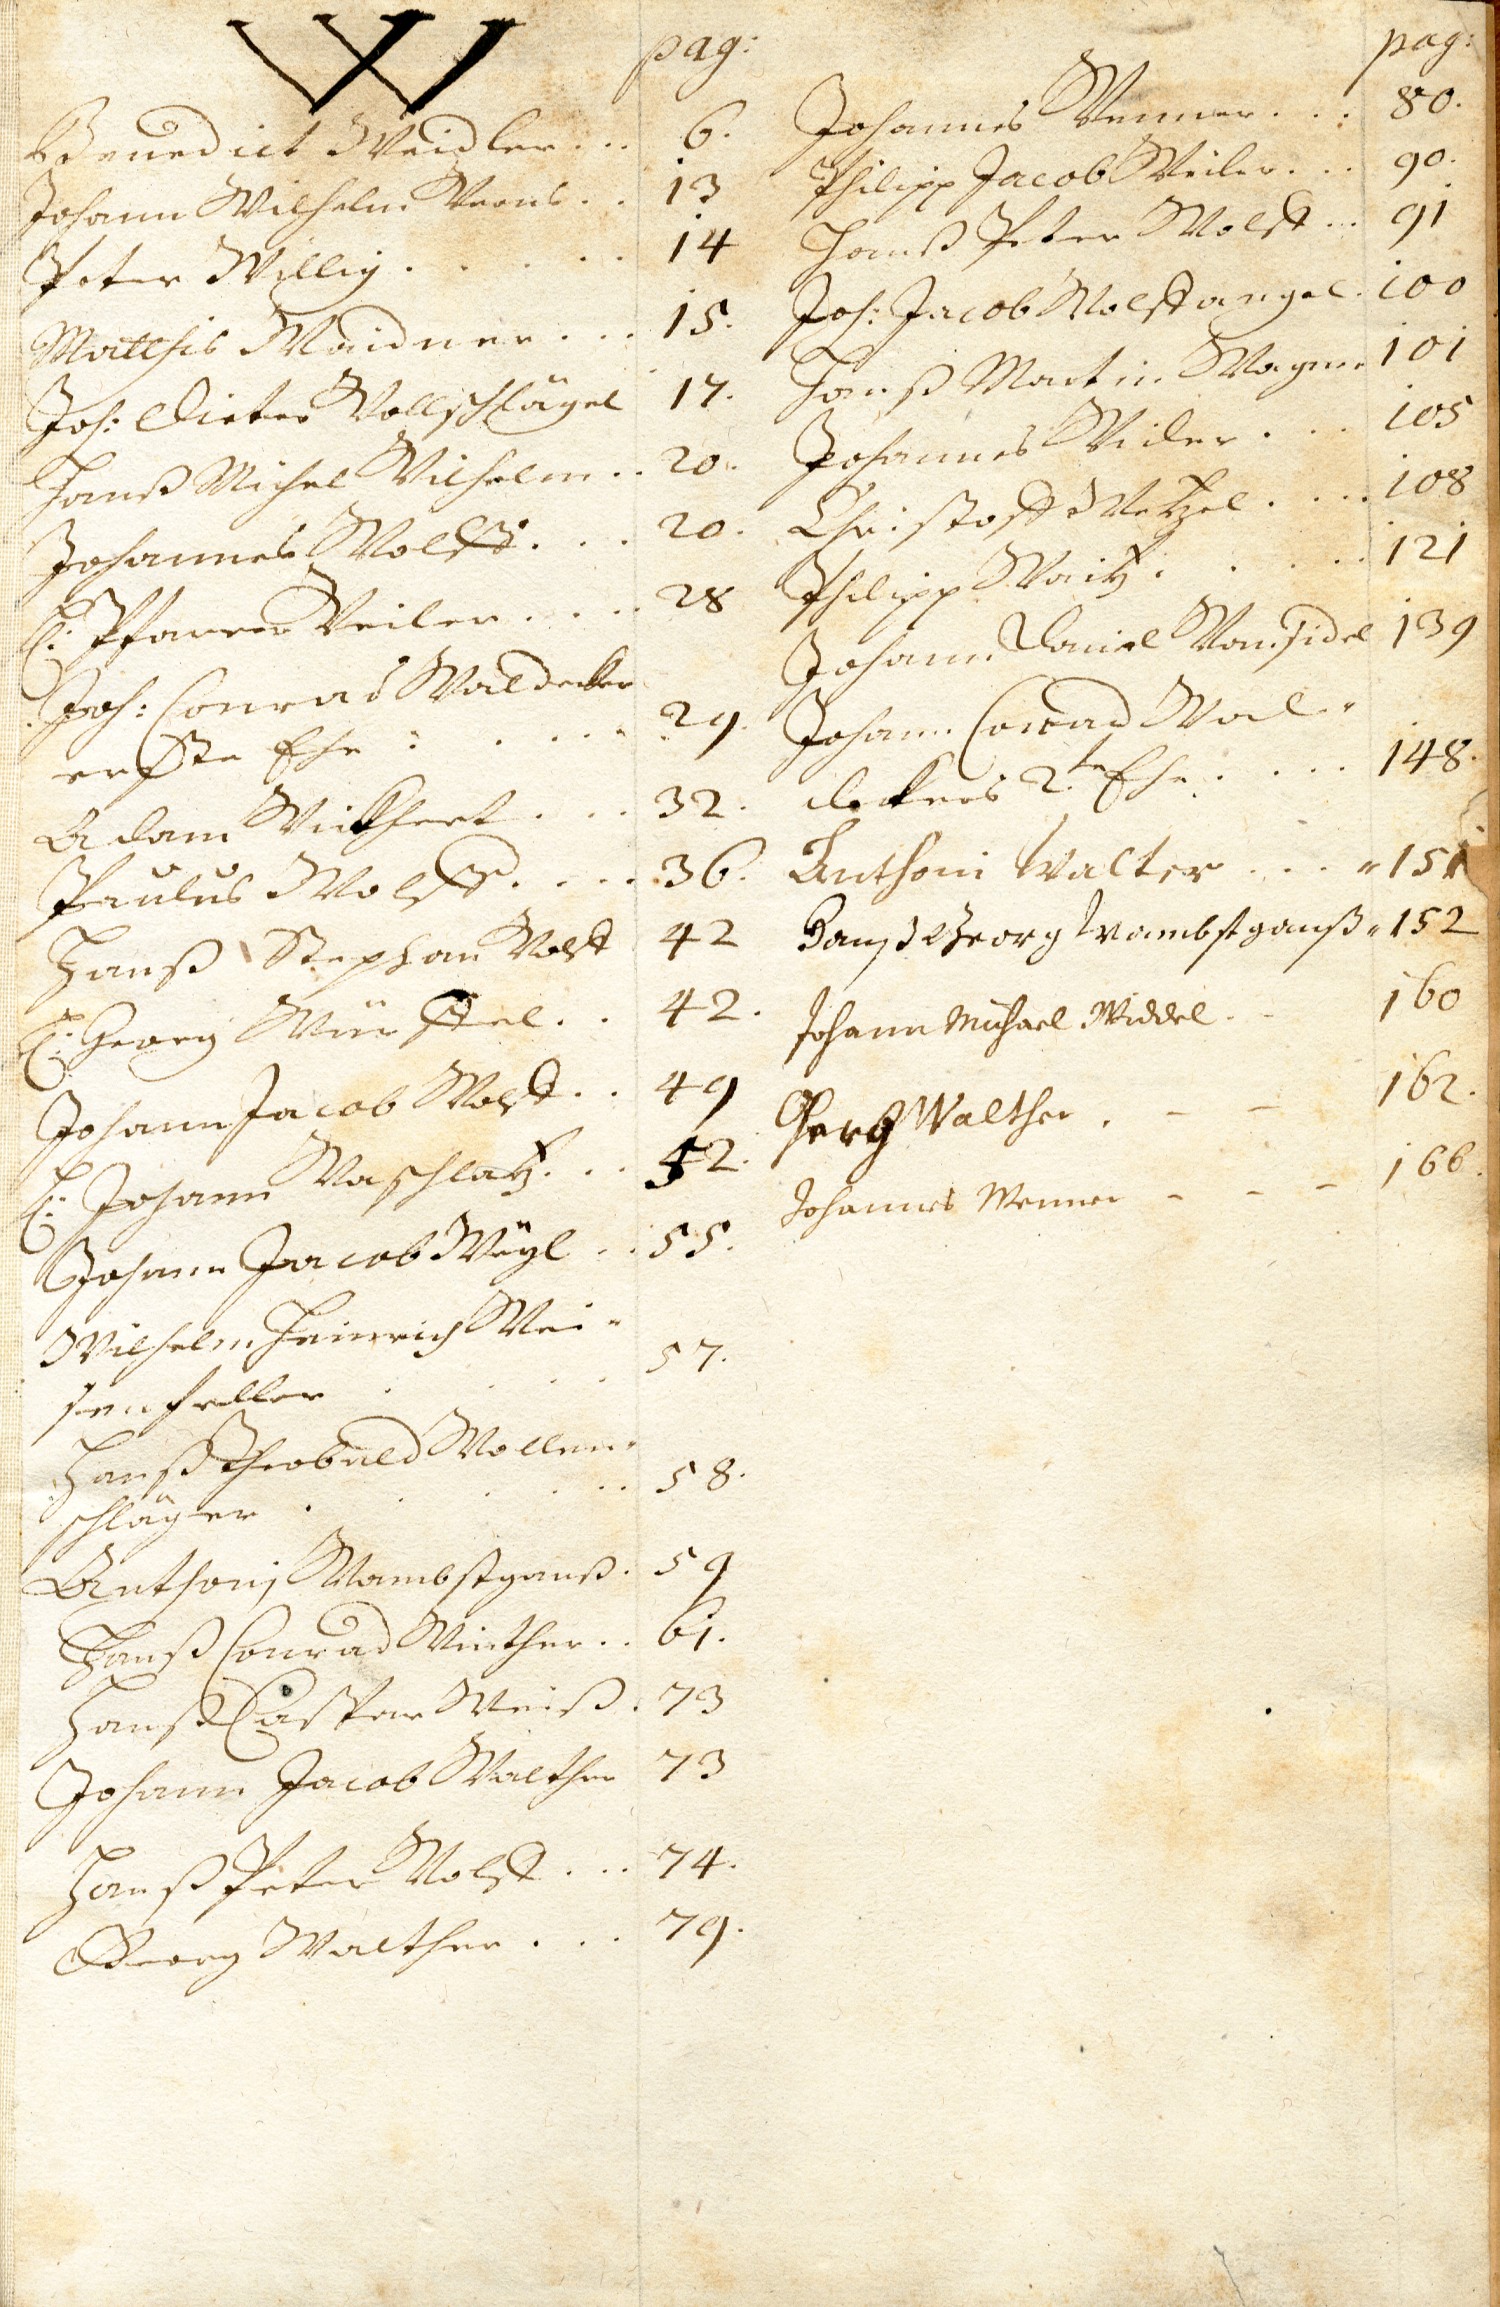 W
pag:
Benedict Weidler . . . 6.
Johann Wilhelm . . 13
Peter Willig . . . . . 14
Matthis Weidner . . . 15.
Joh: Dieter Wollschlägel 17.
Hanß Michel Wilhelm . . 20.
Johannes Wolff . . . 20.
H: Pfarrer Weiler . . . . 28
Joh: Conrad Waldecker
erste Ehe . . . . . 29.
Adam . . . 32.
Paulus Wolff . . . . 36.
Hanß Stephan Wolff 42
H: Georg . . 42.
Johann Jacob Wolff . . 49
H: Johann Waschlatz . . . 52.
Johann Jacob Weyl . . 55.
Wilhelm Heinrich Wei-
senfeller . . . . 57.
Hanß Theobald Wollen-
schläger . . . . . 58.
Anthonj Wambstganß . 59
Hanß Conrad Winther . . 61.
Hanß Caspar Weiß . 73
Johann Jacob Walther 73
Hanß Peter Wolff . . . 74.
Georg Walther . . . 79.
pag:
Johannes Wenner . . . 80.
Philipp Jacob Weiler . . . 90.
Hanß Peter Wolff . . . 91
Joh: Jacob Wolffangel . 100
Hanß Martin Wagner 101
Johannes Weiler . . . 105
Christoff Wetzel . . . . 108
Philipp Waitz . . . . . 121
Johann Daniel 139
Johann Conrad Wal-
deckers 2.te Ehe . . . . 148.
Anthoni Walter . . . 151
Hanß Georg Wambstganß 152
Johann Michael Weddel - - 160
Georg Walther . - - 162.
Johannes Wenner - - - 166.